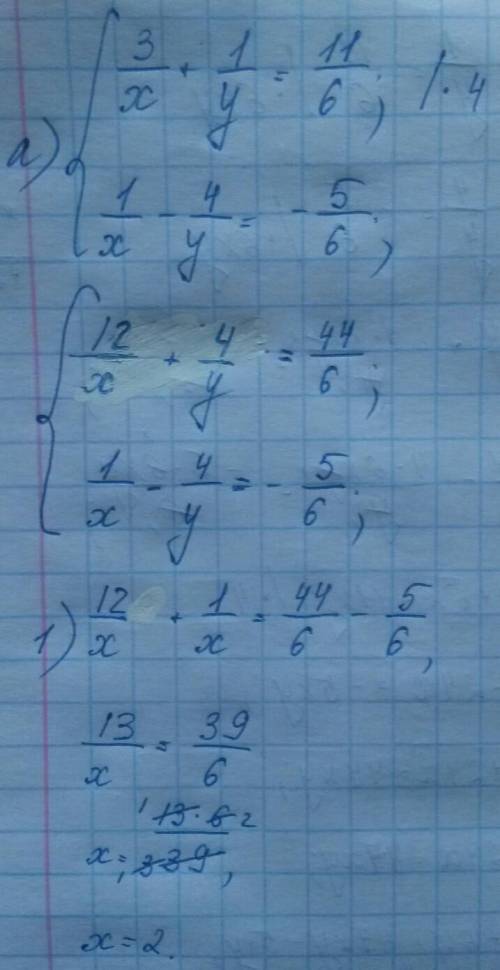 а) { 3/x + 1/y = 11/6; /· 4
1/x - 4/y = - 5/6;
{ 12/x + 4/y = 44/6;
1/x - 4/y = - 5/6;
1) 12/x + 1/x = 44/6 - 5/6,
13/x = 39/6
x = 13·6/39,
x = 2.